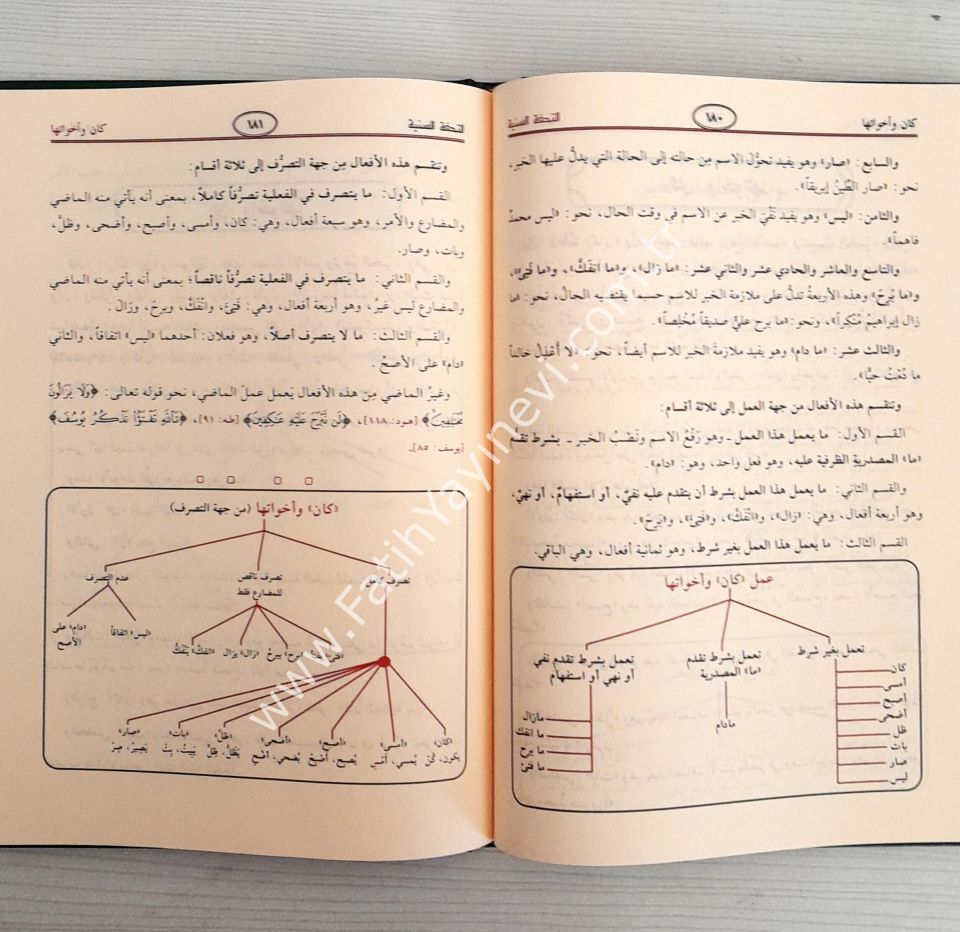 كان وأخواتها ١٨٠ التحفة السنية
والسابع: «صار» وهو يفيد تحوُّل الاسم مِن حالته إلى الحالة التي يدلُّ عليها الخبر،
نحو: «صار الطِّينُ إبريقاً».
والثامن: «ليس» وهو يفيد نَفْيَ الخبر عن الاسم في وقت الحال، نحو: «ليس محمدٌ
فاهماً».
والتاسع والعاشر والحادي عشر والثاني عشر: «ما زال»، و«ما انفكَّ»، و«ما فَتِئَ»،
و«ما بَرِحَ» وهذه الأربعةُ تدلُّ على ملازمة الخبر للاسم حسبما يقتضيه الحالُ، نحو: «ما
زال إبراهيمُ مُنْكِراً»، ونحو: «ما برح عليٌّ صديقاً مُخْلِصاً».
والثالث عشر: «ما دام» وهو يفيد ملازمةَ الخبر للاسم أيضاً، نحو: «لا أَعْذِلُ خالداً
ما دُمْتُ حيًّا».
وتنقسم هذه الأفعال من جهة العمل إلى ثلاثة أقسام:
القسم الأول: ما يعمل هذا العمل ـ وهو رَفْعُ الاسم ونَصْبُ الخبر ـ بشرط تقدم
«ما» المصدرية الظرفية عليه، وهو فعل واحد، وهو: «دام».
والقسم الثاني: ما يعمل هذا العمل بشرط أن يتقدم عليه نفيٌ، أو استفهامٌ، أو نهيٌ،
وهو أربعة أفعال، وهي: «زال»، و«انْفَكَّ»، و«فَتِئَ»، و«بَرِحَ».
القسم الثالث: ما يعمل هذا العمل بغير شرط، وهو ثمانية أفعال، وهي الباقي.
عمل «كان» وأخواتها
تعمل بغير شرط
كان
أمسى
أصبح
أضحى
ظل
بات
صار
ليس
تعمل بشرط تقدم
«ما» المصدرية
مادام
تعمل بشرط تقدم نفي
أو نهي أو استفهام
مازال
ما انفك
ما برح
ما فتئ
التحفة السنية ١٨١ كان وأخواتها
وتنقسم هذه الأفعال مِن جهة التصرُّف إلى ثلاثة أقسام:
القسم الأول: ما يتصرف في الفعلية تصرُّفاً كاملاً، بمعنى أنه يأتي منه الماضي
والمضارع والأمر، وهو سبعة أفعال، وهي: كان، وأمسى، وأصبح، وأضحى، وظلَّ،
وبات، وصار.
والقسم الثاني: ما يتصرف في الفعلية تصرُّفاً ناقصاً؛ بمعنى أنه يأتي منه الماضي
والمضارع ليس غيرُ، وهو أربعة أفعال، وهي: فَتِئَ، وانْفَكَّ، وبرح، وزالَ.
والقسم الثالث: ما لا يتصرف أصلاً، وهو فعلان: أحدهما «ليس» اتفاقاً، والثاني
«دام» على الأصحِّ.
وغيرُ الماضي مِن هذه الأفعال يَعمل عملَ الماضي، نحو قوله تعالى: ﴿وَلَا يَزَالُونَ
مُخْتَلِفِينَ﴾ [هود: ١١٨]، ﴿لَن نَّبْرَحَ عَلَيْهِ عَـٰكِفِينَ﴾ [طه: ٩١]، ﴿تَاللَّهِ تَفْتَؤُا تَذْكُرُ يُوسُفَ﴾
[يوسف: ٨٥].
«كان» وأخواتها (من جهة التصرف)
تصرف
تصرف ناقص
للمضارع فقط
عدم التصرف
«برح» يبرحُ
«زال» يزال
«انفكَّ» يَنْفَكُّ
«ليس» اتفاقاً
«دام» على
الأصح
«كان»
يكون، كُنْ
«أمسى»
يُمسي، أَمْسِ
«أصبح»
يُصبح، أَصْبِحْ
«أضحى»
يُضحي، أَضْحِ
«ظلَّ»
يَظَلُّ، ظَلَّ
«بات»
يَبِيتُ، بِتْ
«صار»
يَصِيرُ، صِرْ
www.FatihYayinevi.com.tr